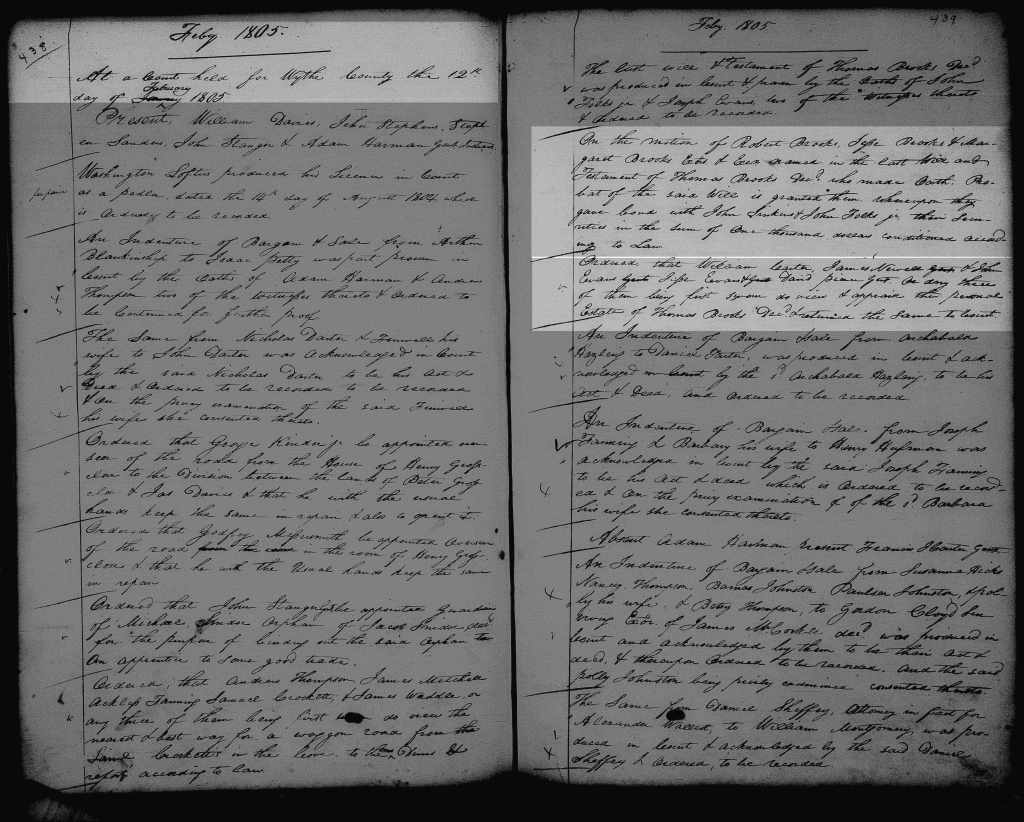 438
Feby. 1805.
At a Court held for Wythe County the 12th
February
day of January 1805
Present, William Davies, John Stephens, Steph
en Sanders, John Stanger & Adam Harman Gent Justices
Washington Loftis produced his Licence in Court
as a Pedlar, dated the 14th day of August 1804 which
is Ordered to be recorded
An Indenture of Bargain & Sale from Arthur
Blankinship to Isaac Petty was part proven in
Court by the Oaths of Adam Harman & Andrew
Thompson two of the Witnesses thereto & Ordered to
be Continued for further proof
The Same from Nicholas Darter & his
wife to John Darter was acknowledged in Court
by the said Nicholas Darter to be his Act &
Deed & Ordered to be recorded to be recorded
& On the privy examination of the said
his wife she consented thereto.
Ordered that George Kinder be appointed over
seer of the road from the House of Henry Gros
close to the Division between the lands of Peter Gros
clox & Jas Davis & that he with the usual
hands keep the same in repair & also to open it.
Ordered that Godfrey be appointed Overseer
of the road from the in the room of Henry Gros
close & that he with the Usual hands keep the same
in repair
Ordered that John Stanger be appointed Guardian
of Michael Orphan of Jacob decd
for the purpose of binding out the said Orphan to
An apprentice to some good trade.
Ordered, that Andrew Thompson, James Mitchell
Acklep Fanning Samuel Crockett, & James Waddle, or
any three of them being first do view the
nearest & best way for a waggon road from the
Crocketts in the Cove, to the &
report according to law
Feby. 1805
439
The last will & Testament of Thomas Brooks Decd
was produced in Court & proven by the Oaths of John
Folks jr & Joseph Evans, two of the Witnesses thereto
& Ordered to be recorded
On the motion of Robert Brooks, Jesse Brooks & Mar-
garet Brooks Exts & Exx named in the last Will and
Testament of Thomas Brooks Decd. who made Oath. Pro-
bat of the said Will is granted them whereupon they
gave bond with John Jenkins & John Folks jr their Secu-
rities in the sum of One thousand dollars conditioned accord-
ing to Law
Ordered that William Carter, James Newell gent & John
Evans gent Jesse Evans & David Peirce gent Or Any three
of them being first sworn do view & appraise the personal
Estate of Thomas Brooks Decd & returned the Same to Court
An Indenture of Bargain Sale from Archabald
to Daniel was produced in Court & ack-
nowledged in Court by the sd Archabald to be his
Act & Deed, and Ordered to be recorded
An Indenture of Bargain Sale from Joseph
Fanning & Barbary his wife to Henry Hufman was
acknowledged in Court by the said Joseph Fanning
to be his Act & deed which is Ordered to be record-
ed & On the privy examination of the sd Barbara
his wife she consented thereto.
Absent Adam Harman, Present Francis Carter Gent
An Indenture of Bargain Sale from Susanna Hicks
Nancy Thompson Barnas Johnston Paulser Johnston, & Pol-
ly his wife, & Betsy Thompson, to Gordon Cloyd
Extr of James McCorkle decd was produced in
Court and acknowledged by them to be their Act &
deed, & thereupon Ordered to be recorded. And the said
Polly Johnston being privily examined consented thereto
The Same from Daniel Sheffey, Attorney in fact for
Alexander to William Montgomery, was pro-
duced in Court & acknowledged by the said Daniel
Sheffey & Ordered, to be recorded